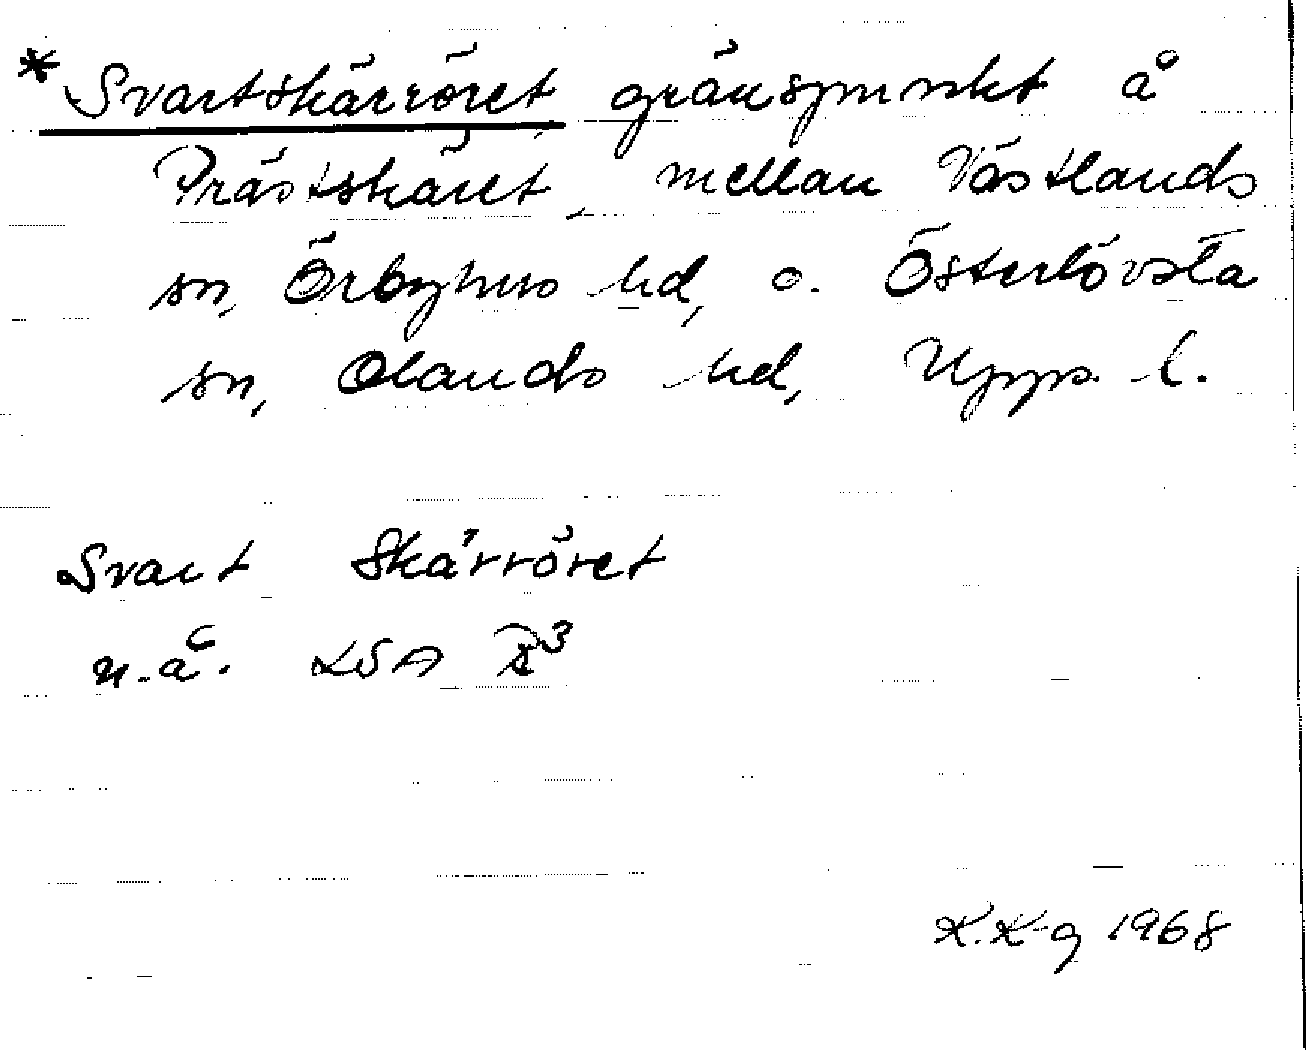 * Svartskärröret gränspunkt å
Prästskäret mellan Västlands
sn, Örbyhus hd, o. Österlövsta
sn, Olands hd, Upps. l.
Svart Skärröret
n.å. LSA
K.K-g 1968